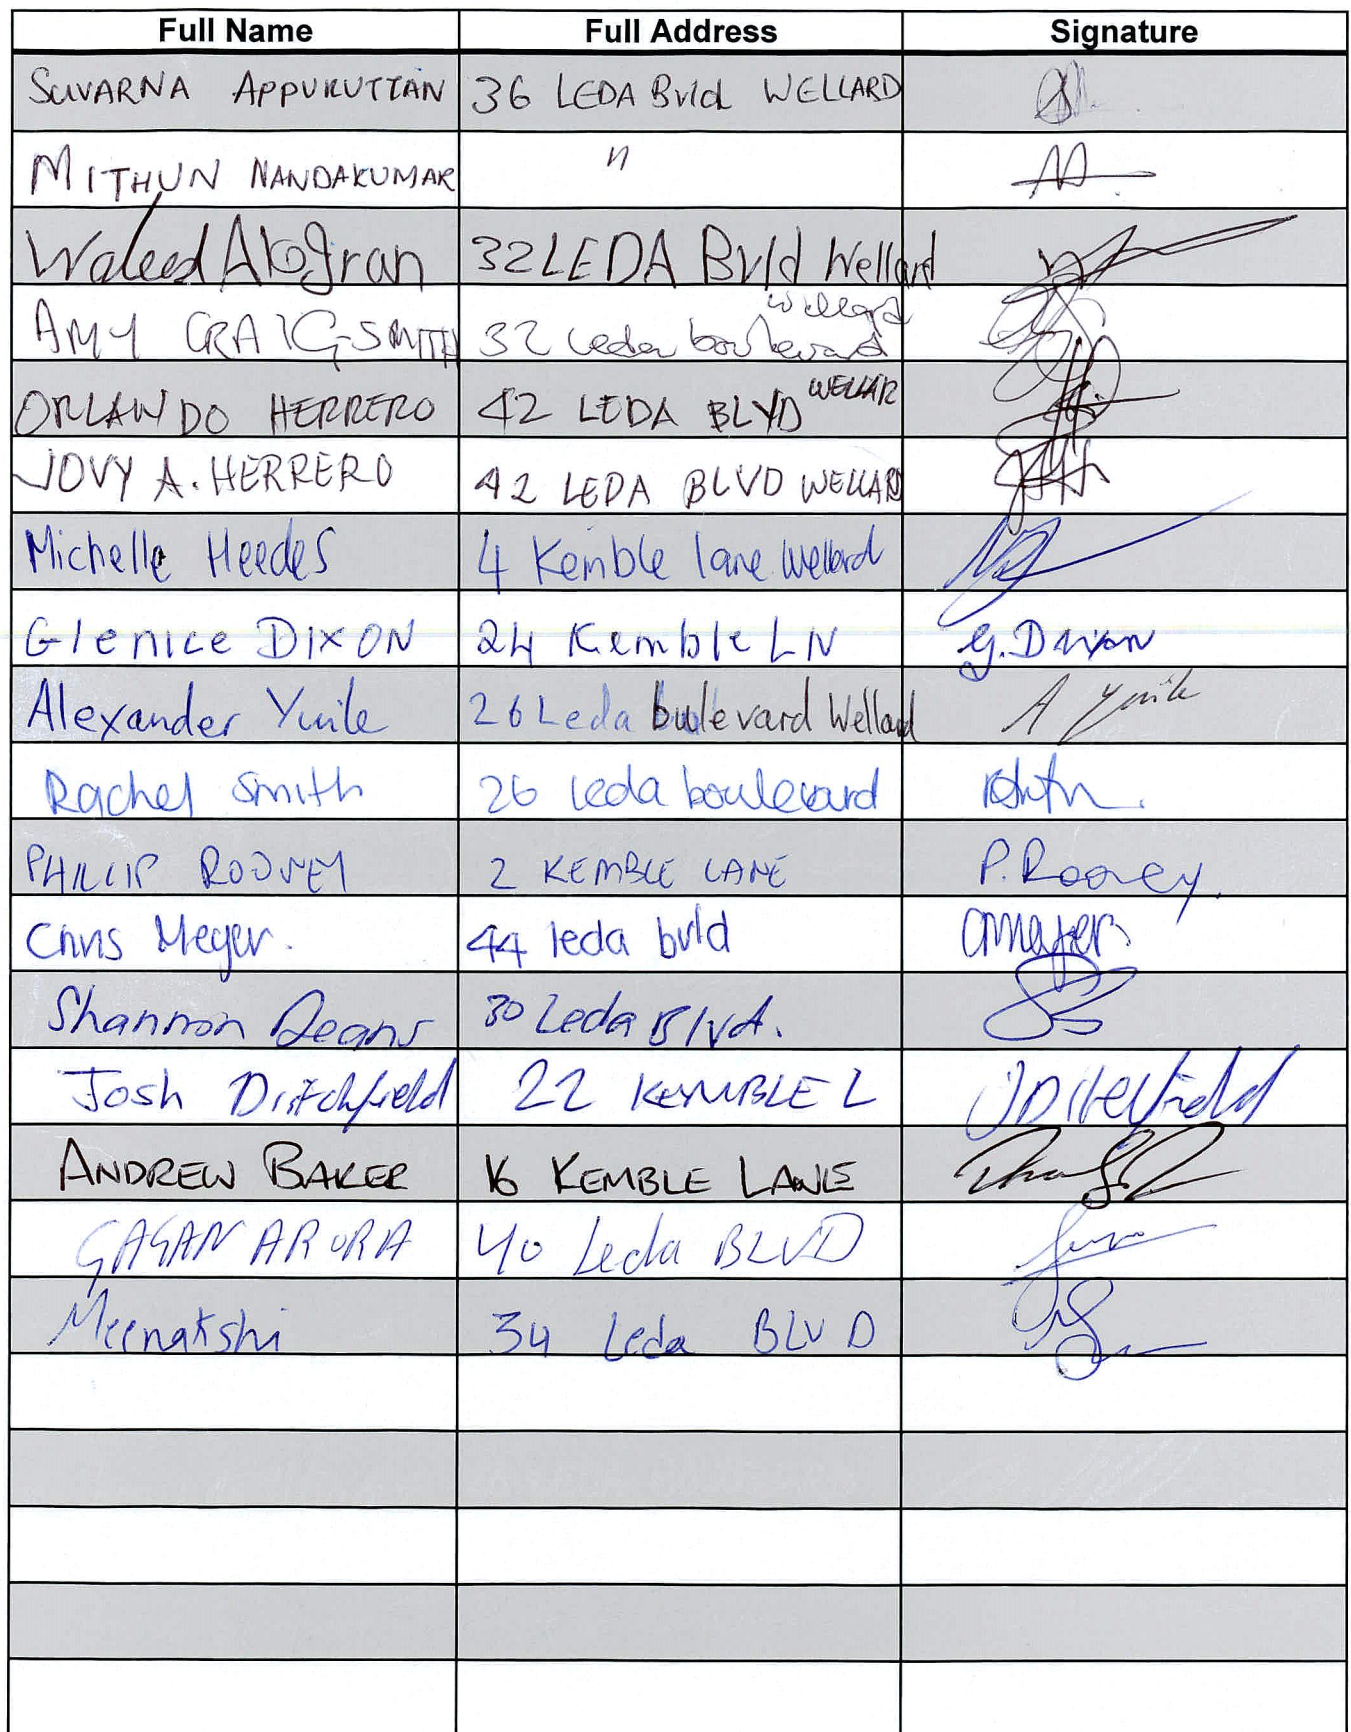 Full Name Full Address Signature
SUVARNA APPUKUTTAN 36 LEDA Bvld WELLARD
MITHUN NANDAKUMAR "
Waleed 32 LEDA Bvld Wellard
AMY CRAIG-SMITH 32 Leda boulevard Wellard
ORLANDO HERRERO 42 LEDA BLVD WELLAR
JOVY A. HERRERO 42 LEDA BLVD WELLARD
Michelle Heedes 4 Kemble lane Wellard
Glenice DIXON 24 Kemble LN G. Dixon
Alexander Yuile 26 Leda bulevard Wellard A Yuile
Rachel Smith 26 Leda boulevard
PHILLIP ROONEY 2 KEMBLE LANE P. Rooney.
Chris Meyer. 44 leda bvld
Shannon Deans 30 Leda Blvd.
Josh Ditchfield 22 KEMBLE L J Ditchfield
ANDREW BAKER 16 KEMBLE LANE
GAGAN ARORA 40 Leda BLVD
Meenakshi 34 Leda BLVD